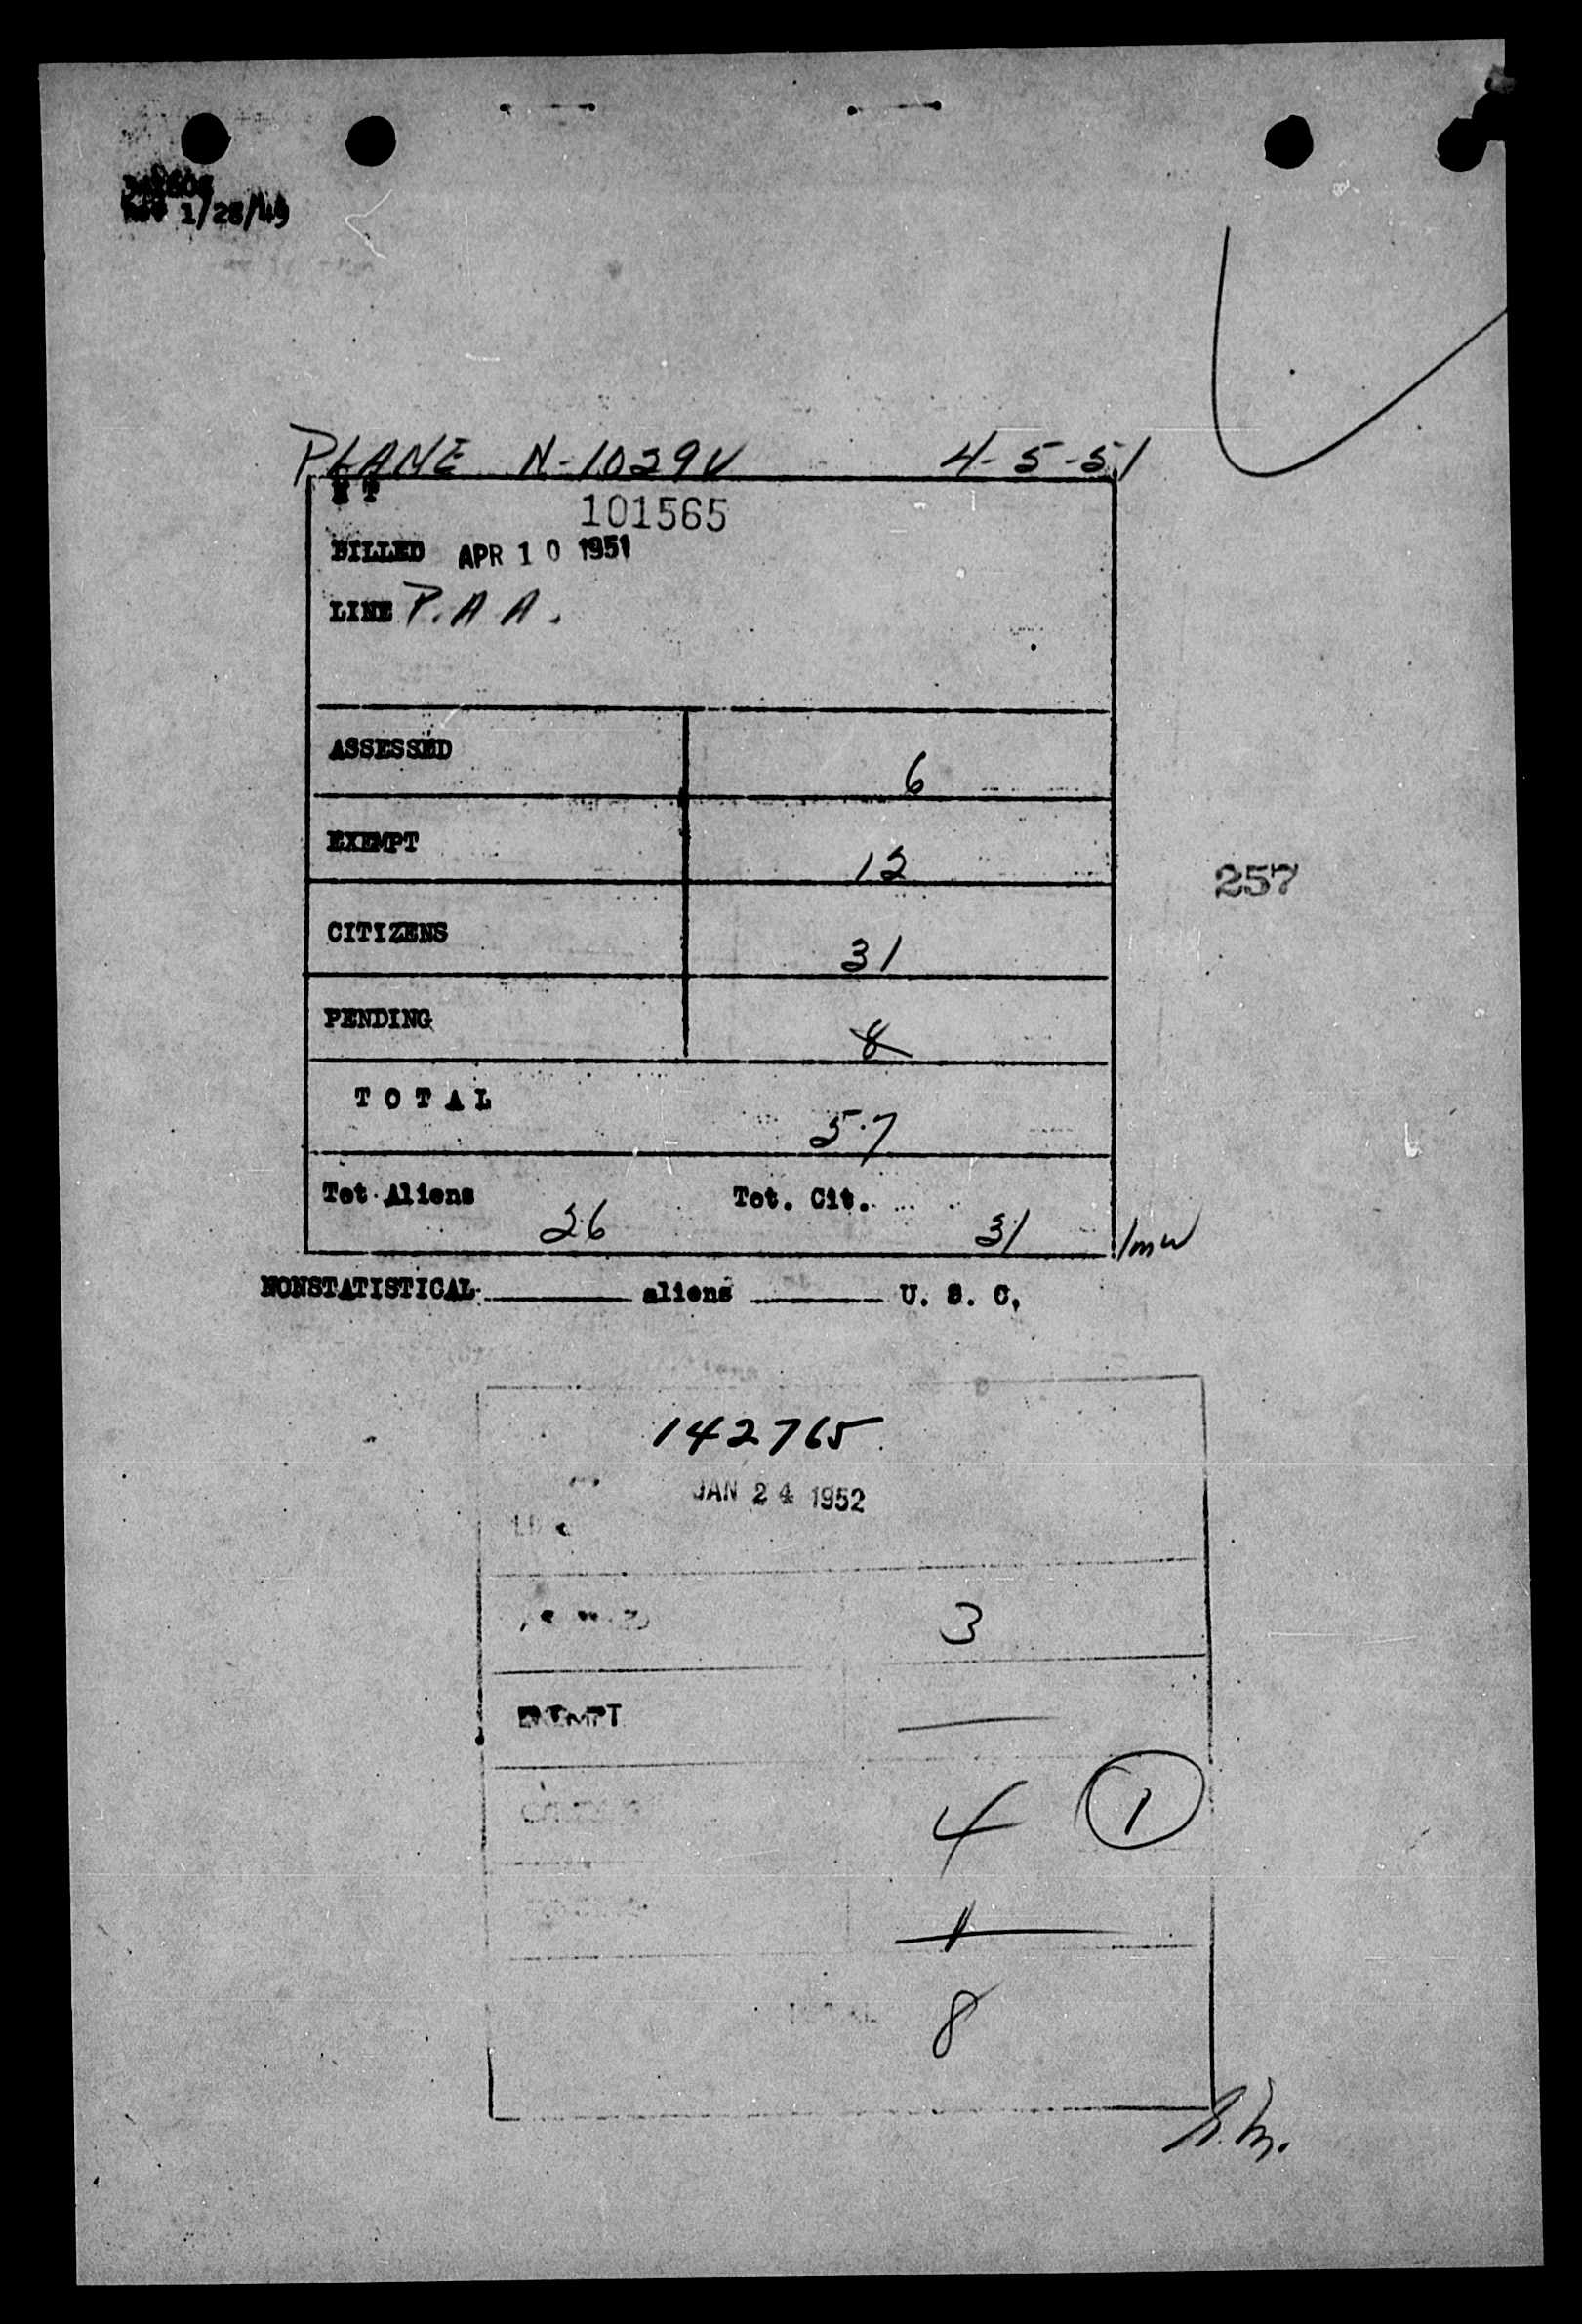 Rev 1/28/49
PLANE N-1029V 4-5-51
H T 101565
BILLED APR 10 1951
LINE P.A A.
ASSESSED 6
EXEMPT 12
CITIZENS 31
PENDING 8
T O T A L 57
Tot Aliens 26 Tot. Cit. 31 /mw
257
NONSTATISTICAL aliens U. S. C.
142765
JAN 24 1952
3
EXEMPT
4 1
1
8